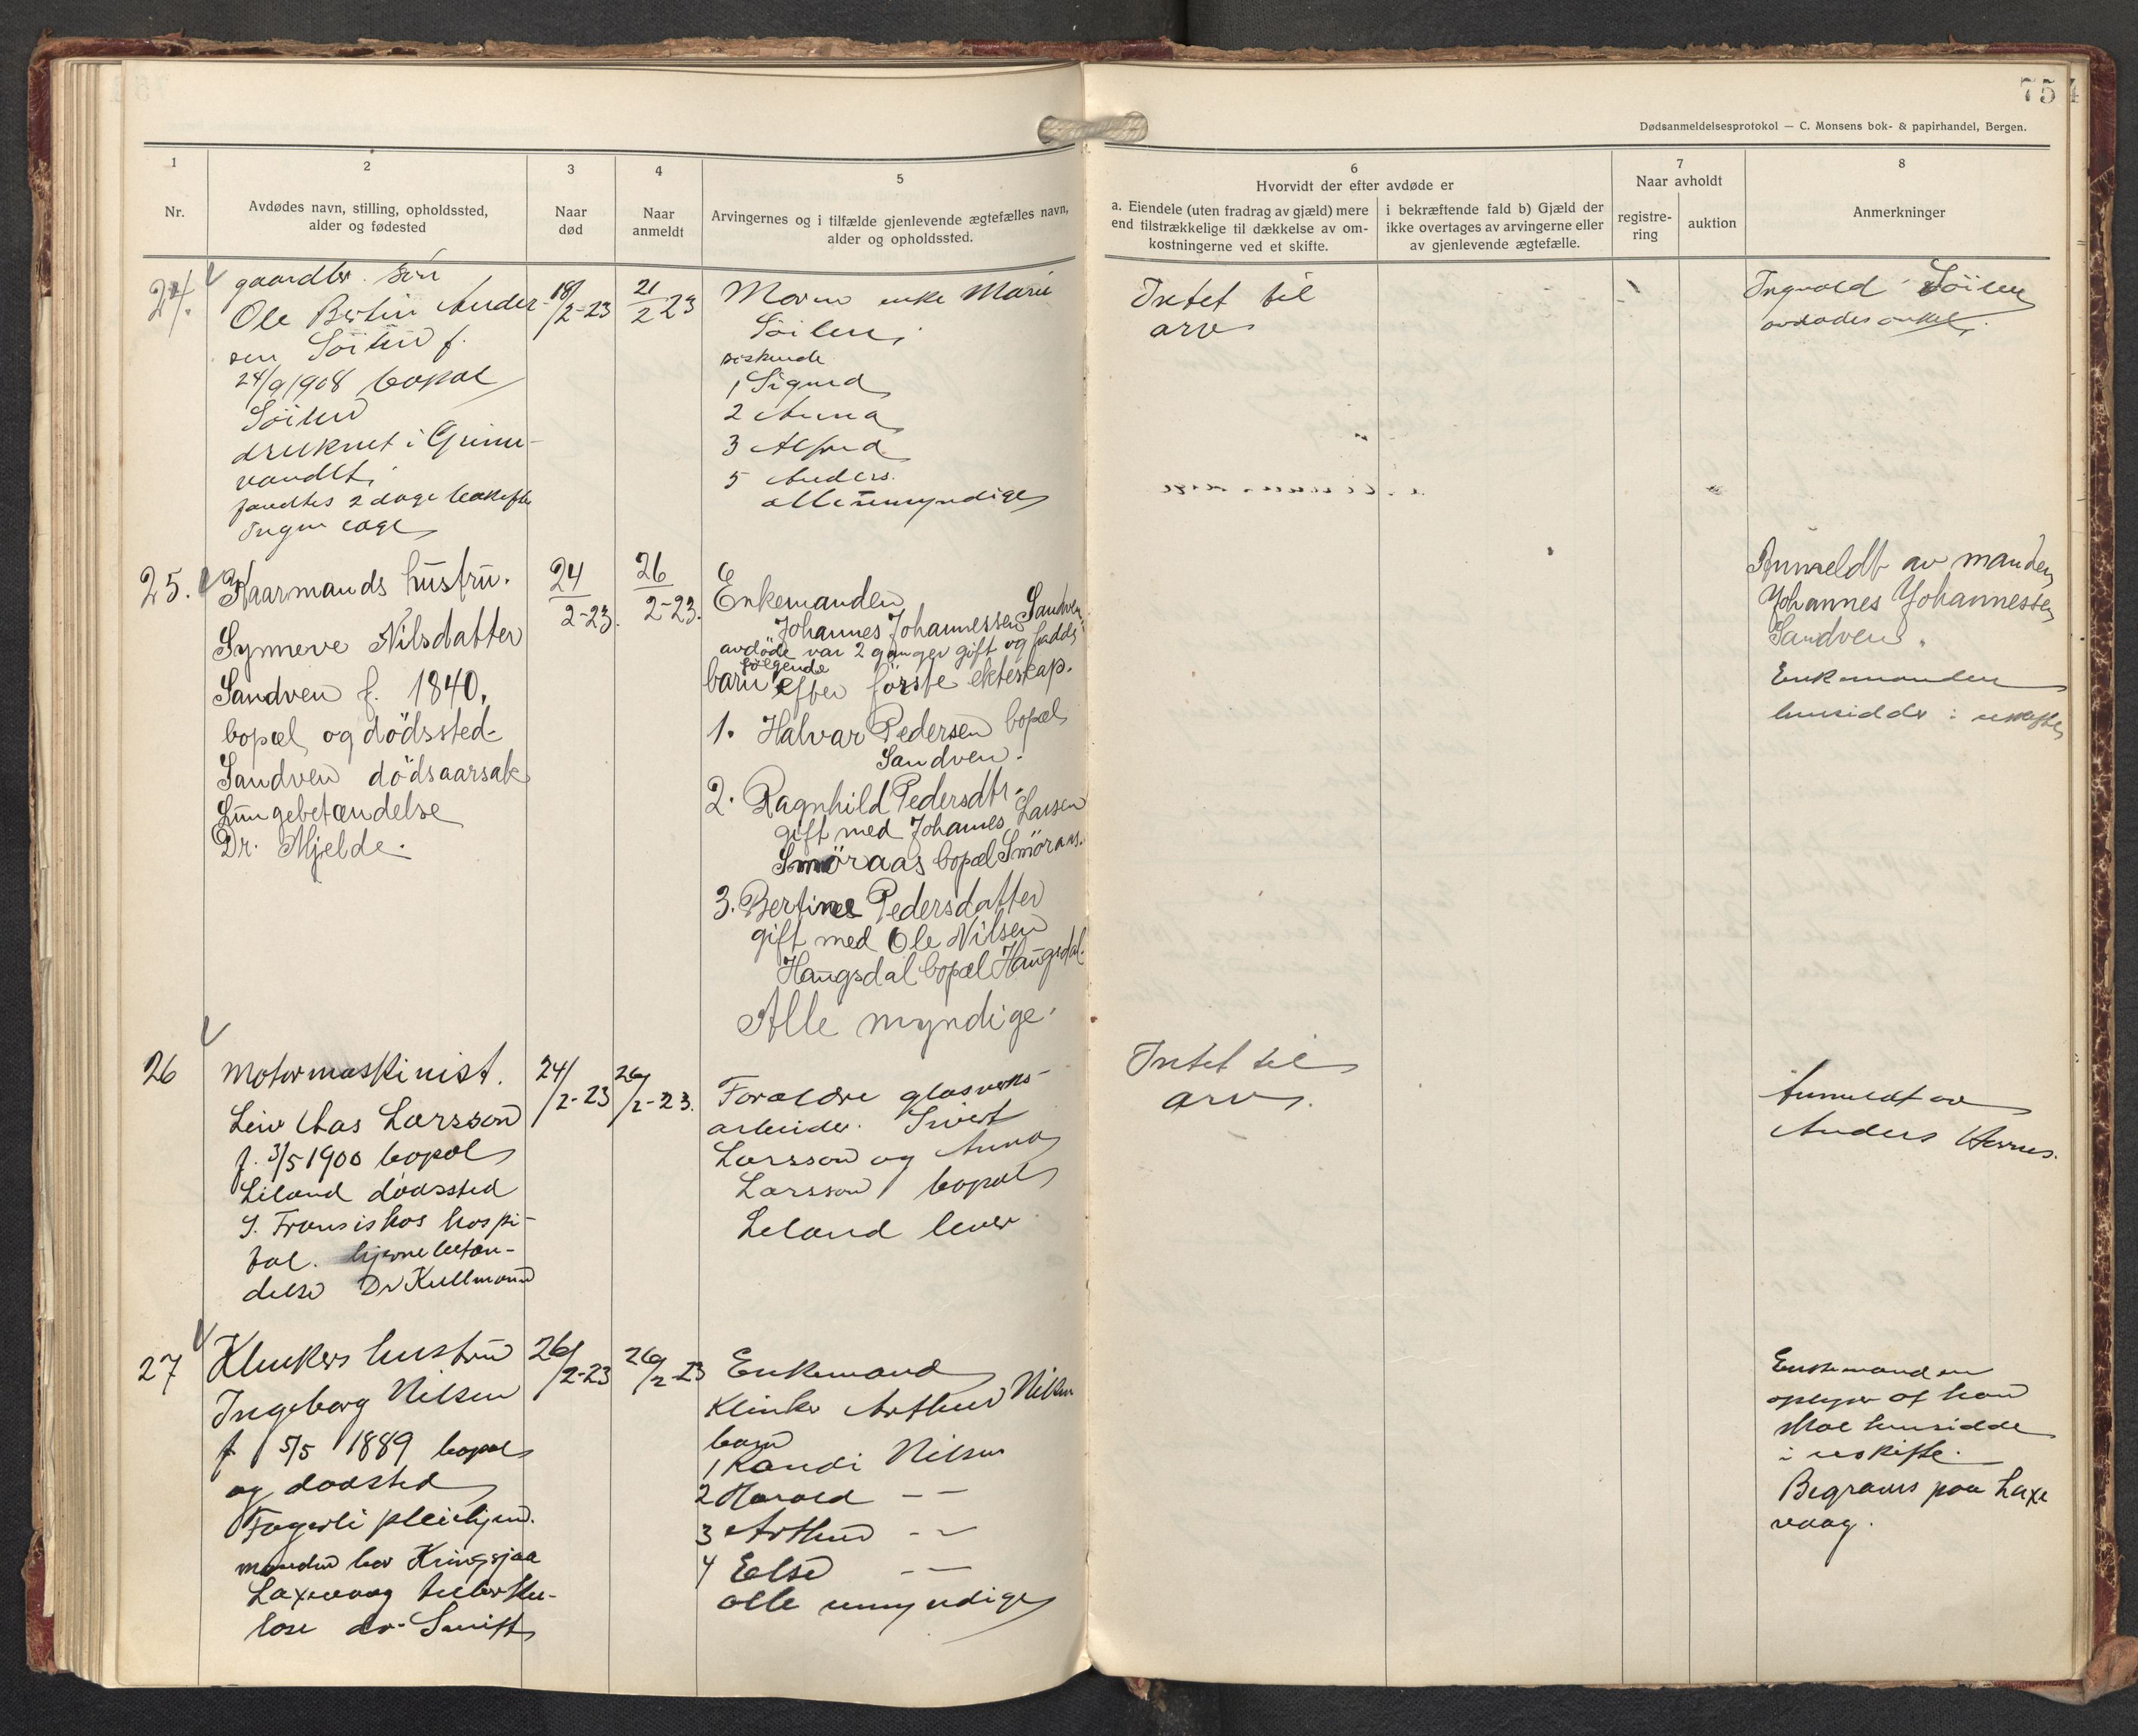 75
Dødsanmeldelsesprotokol — C. Monsens bok- & papirhandel, Bergen.
1
Nr.
2
Avdødes navn, stilling, opholdssted,
alder og fødested
3
Naar
død
4
Naar
anmeldt
5
Arvingernes og i tilfælde gjenlevende ægtefælles navn,
alder og opholdssted.
6
Hvorvidt der efter avdøde er
a. Eiendele (uten fradrag av gjæld) mere
end tilstrækkelige til dækkelse av om-
kostningerne ved et skifte.
i bekræftende fald b) Gjæld der
ikke overtages av arvingerne eller
av gjenlevende ægtefælle.
7
Naar avholdt
registre-
ring
auktion
8
Anmerkninger
24.
gaardbr. søn
Ole Bertin Ander-
sen Söilen f.
24/9 1908 bopæl
Söilen
druknet i Grime-
vandet,
fandtes 2 dage
Ingen læge
18/2-23
21/2 23
Moren enke Marie
Söilen,
søskende
1 Sigurd
2 Anna
3 Alfred
5 Anders.
alle umyndige
Intet til
arv
Ingvald Söilen
avdødes onkel.
25.
Kaarmands hustru.
Synneve Nilsdatter
Sandven f. 1840.
bopæl og dödssted
Sandven dödsaarsak
Lungebetændelse
Dr. Mjelde.
24/2-23.
26/2-23.
Enkemanden
Johannes Johannessen Sandven
avdöde var 2 ganger gift og hadde
følgende
barn efter förste ekteskap.
1. Halvar Pedersen bopæl
Sandven.
2. Ragnhild Pedersdtr.
gift med Johanes Larsen
Smöraas bopæl Smöraas.
3. Bertine Pedersdatter
gift med Ole Nilsen
Haugsdal bopæl Haugsdal.
Alle myndige.
Anmeldt av manden
Johannes Johannessen
Sandven.
Enkemanden
hensidder i uskifte
26
Motormaskinist.
Larsson
f. 3/5 1900 bopæl
Liland dødssted
S. Fransiskus hospi-
tal. hjernebetæn-
delse Dr Kullmann
24/2-23
26/2-23.
Forældre glasverks-
arbeider. Sivert
Larsson og Anna
Larsson bopæl
Leland lever
Intet til
arv.
Anmeldt av
Anders Hernes.
27
Klinkers hustru
Ingeborg Nilsen
f 5/5 1889 bopæl
og dødsted
Fagerli pleiehjem.
manden bor Kringsjaa
Laxevaag tuberku-
lose dr. Smitt
26/2-23
26/2-23
Enkemand
Klinker Arthur Nilsen
barn
1 Randi Nilsen
2 Harald — —
3 Arthur — —
4 Else — —
alle umyndige
Enkemanden
oplyser at han
skal hensidde
i uskifte.
Begraves paa Laxe
vaag.